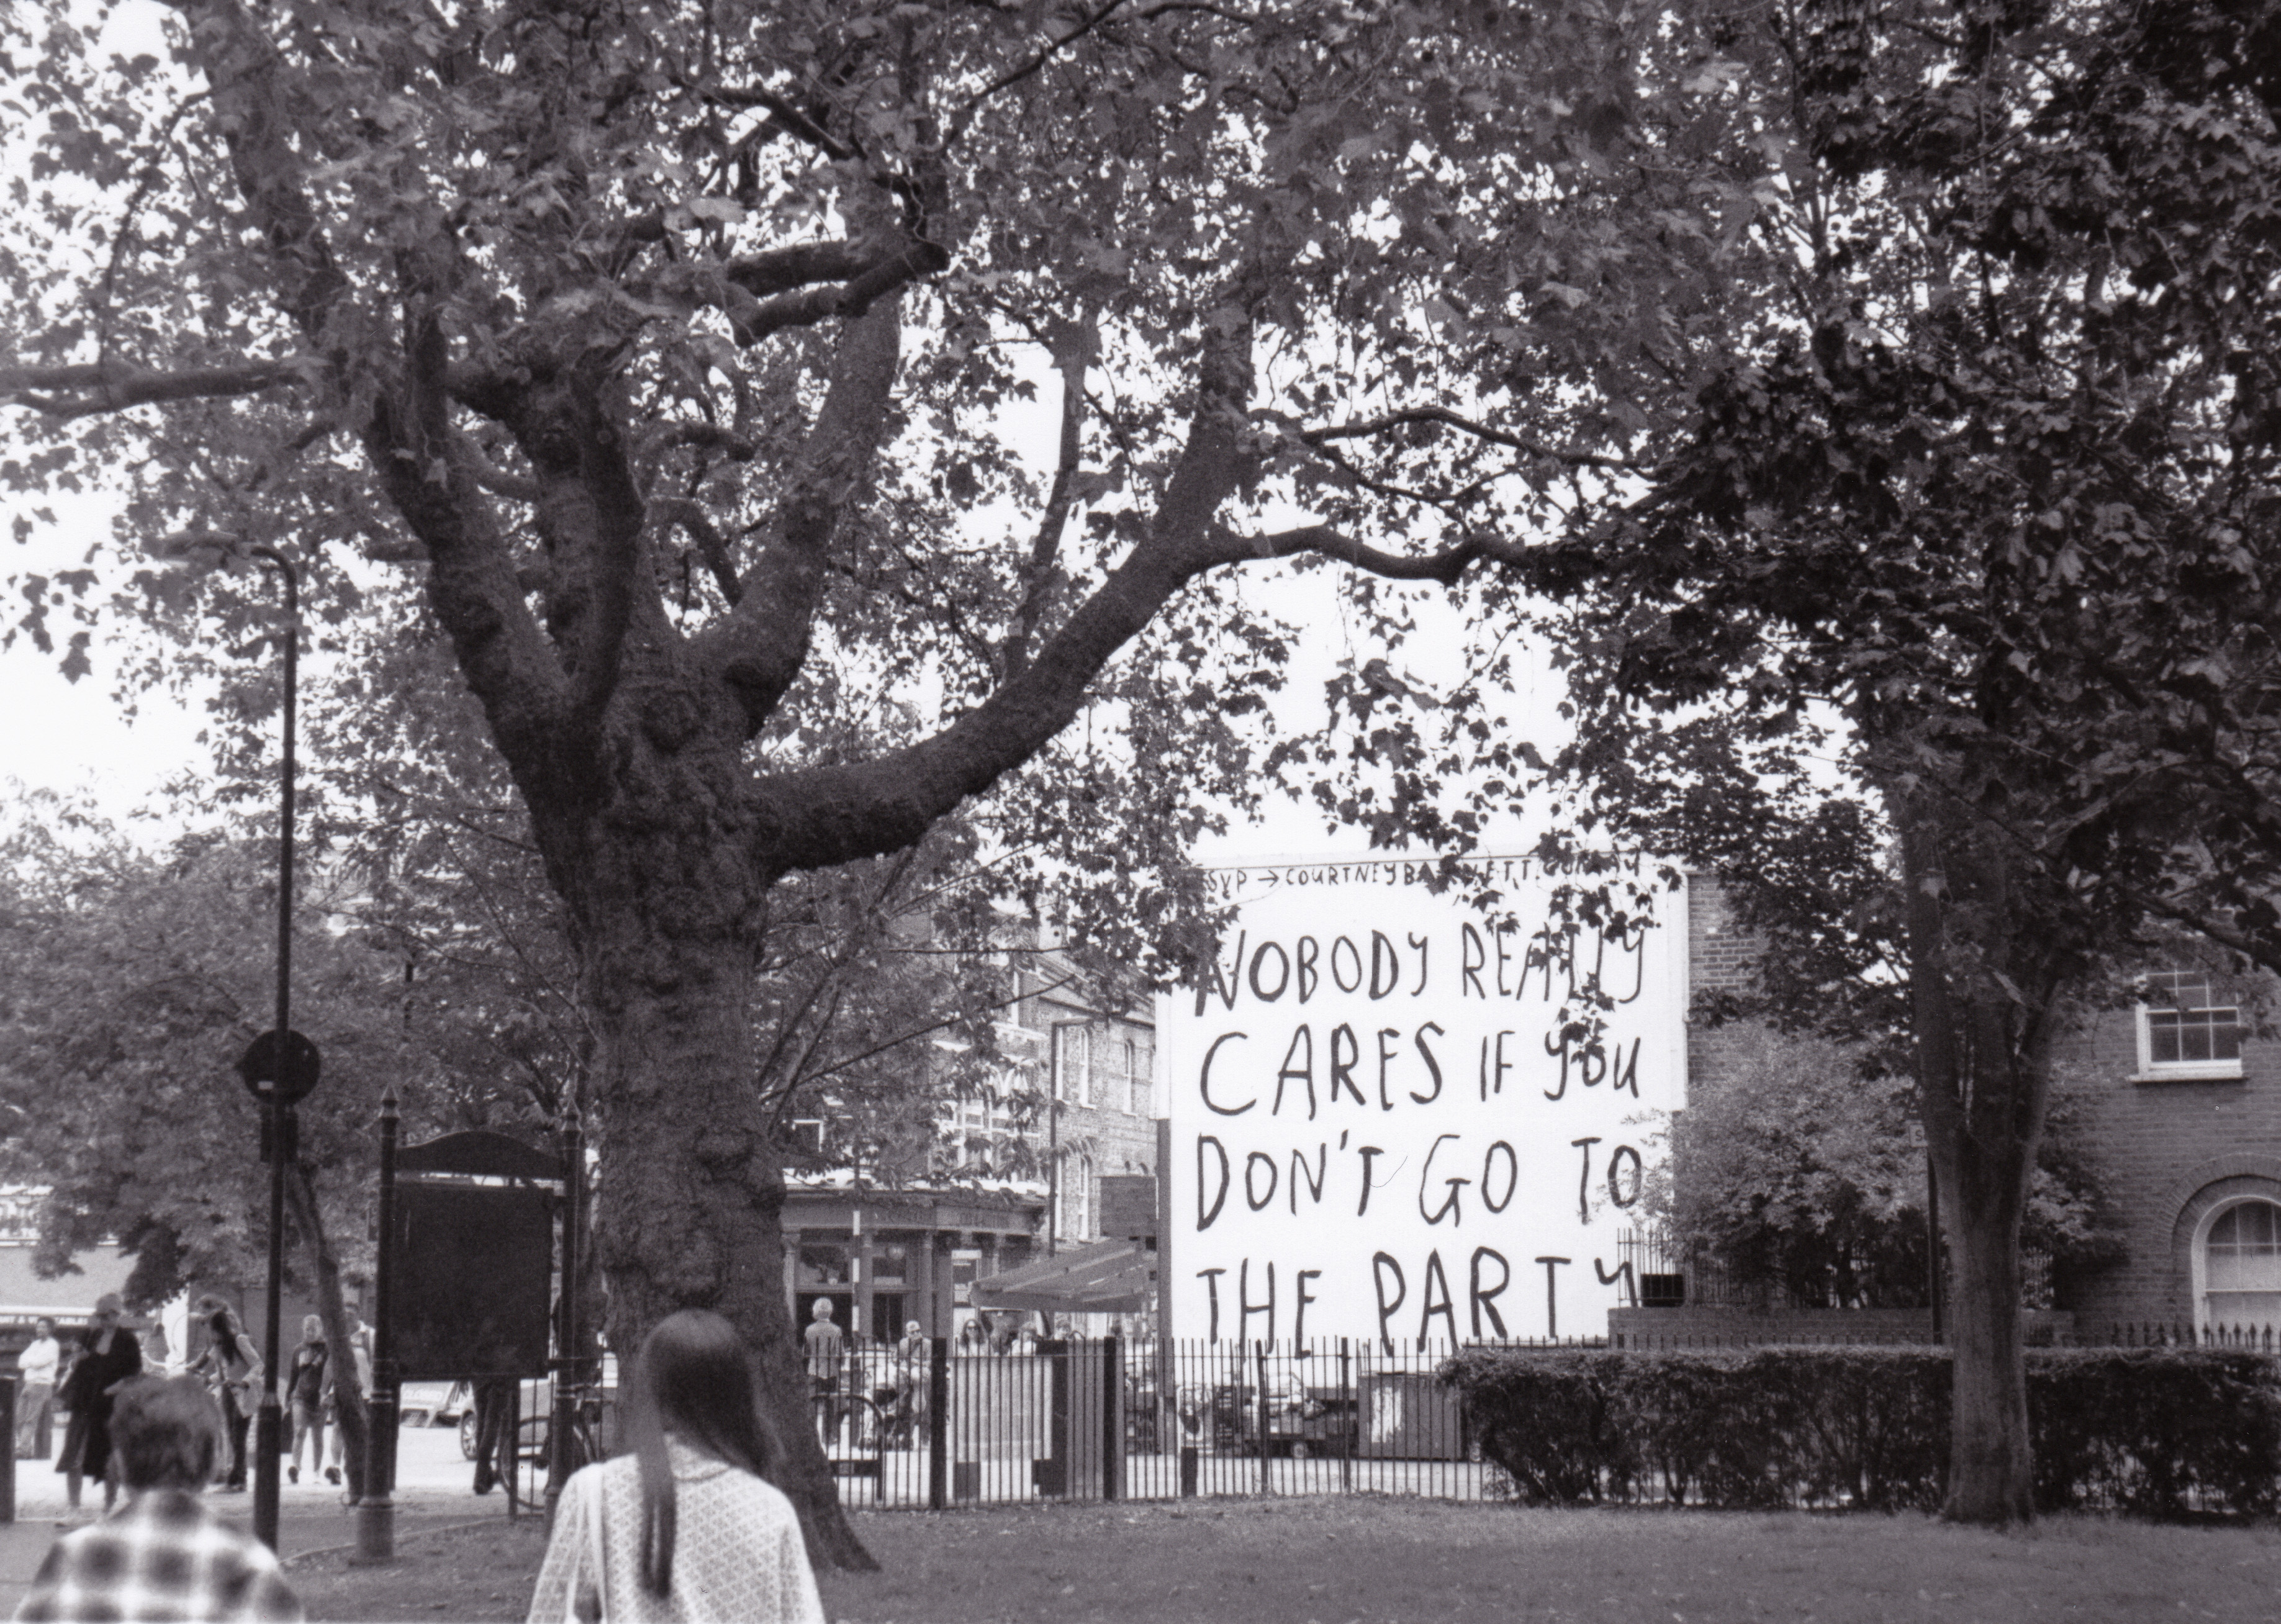 SVP → COURTNEYBARNETT.COM.AU
NOBODY REALLY
CARES IF YOU
DON'T GO TO
THE PARTY